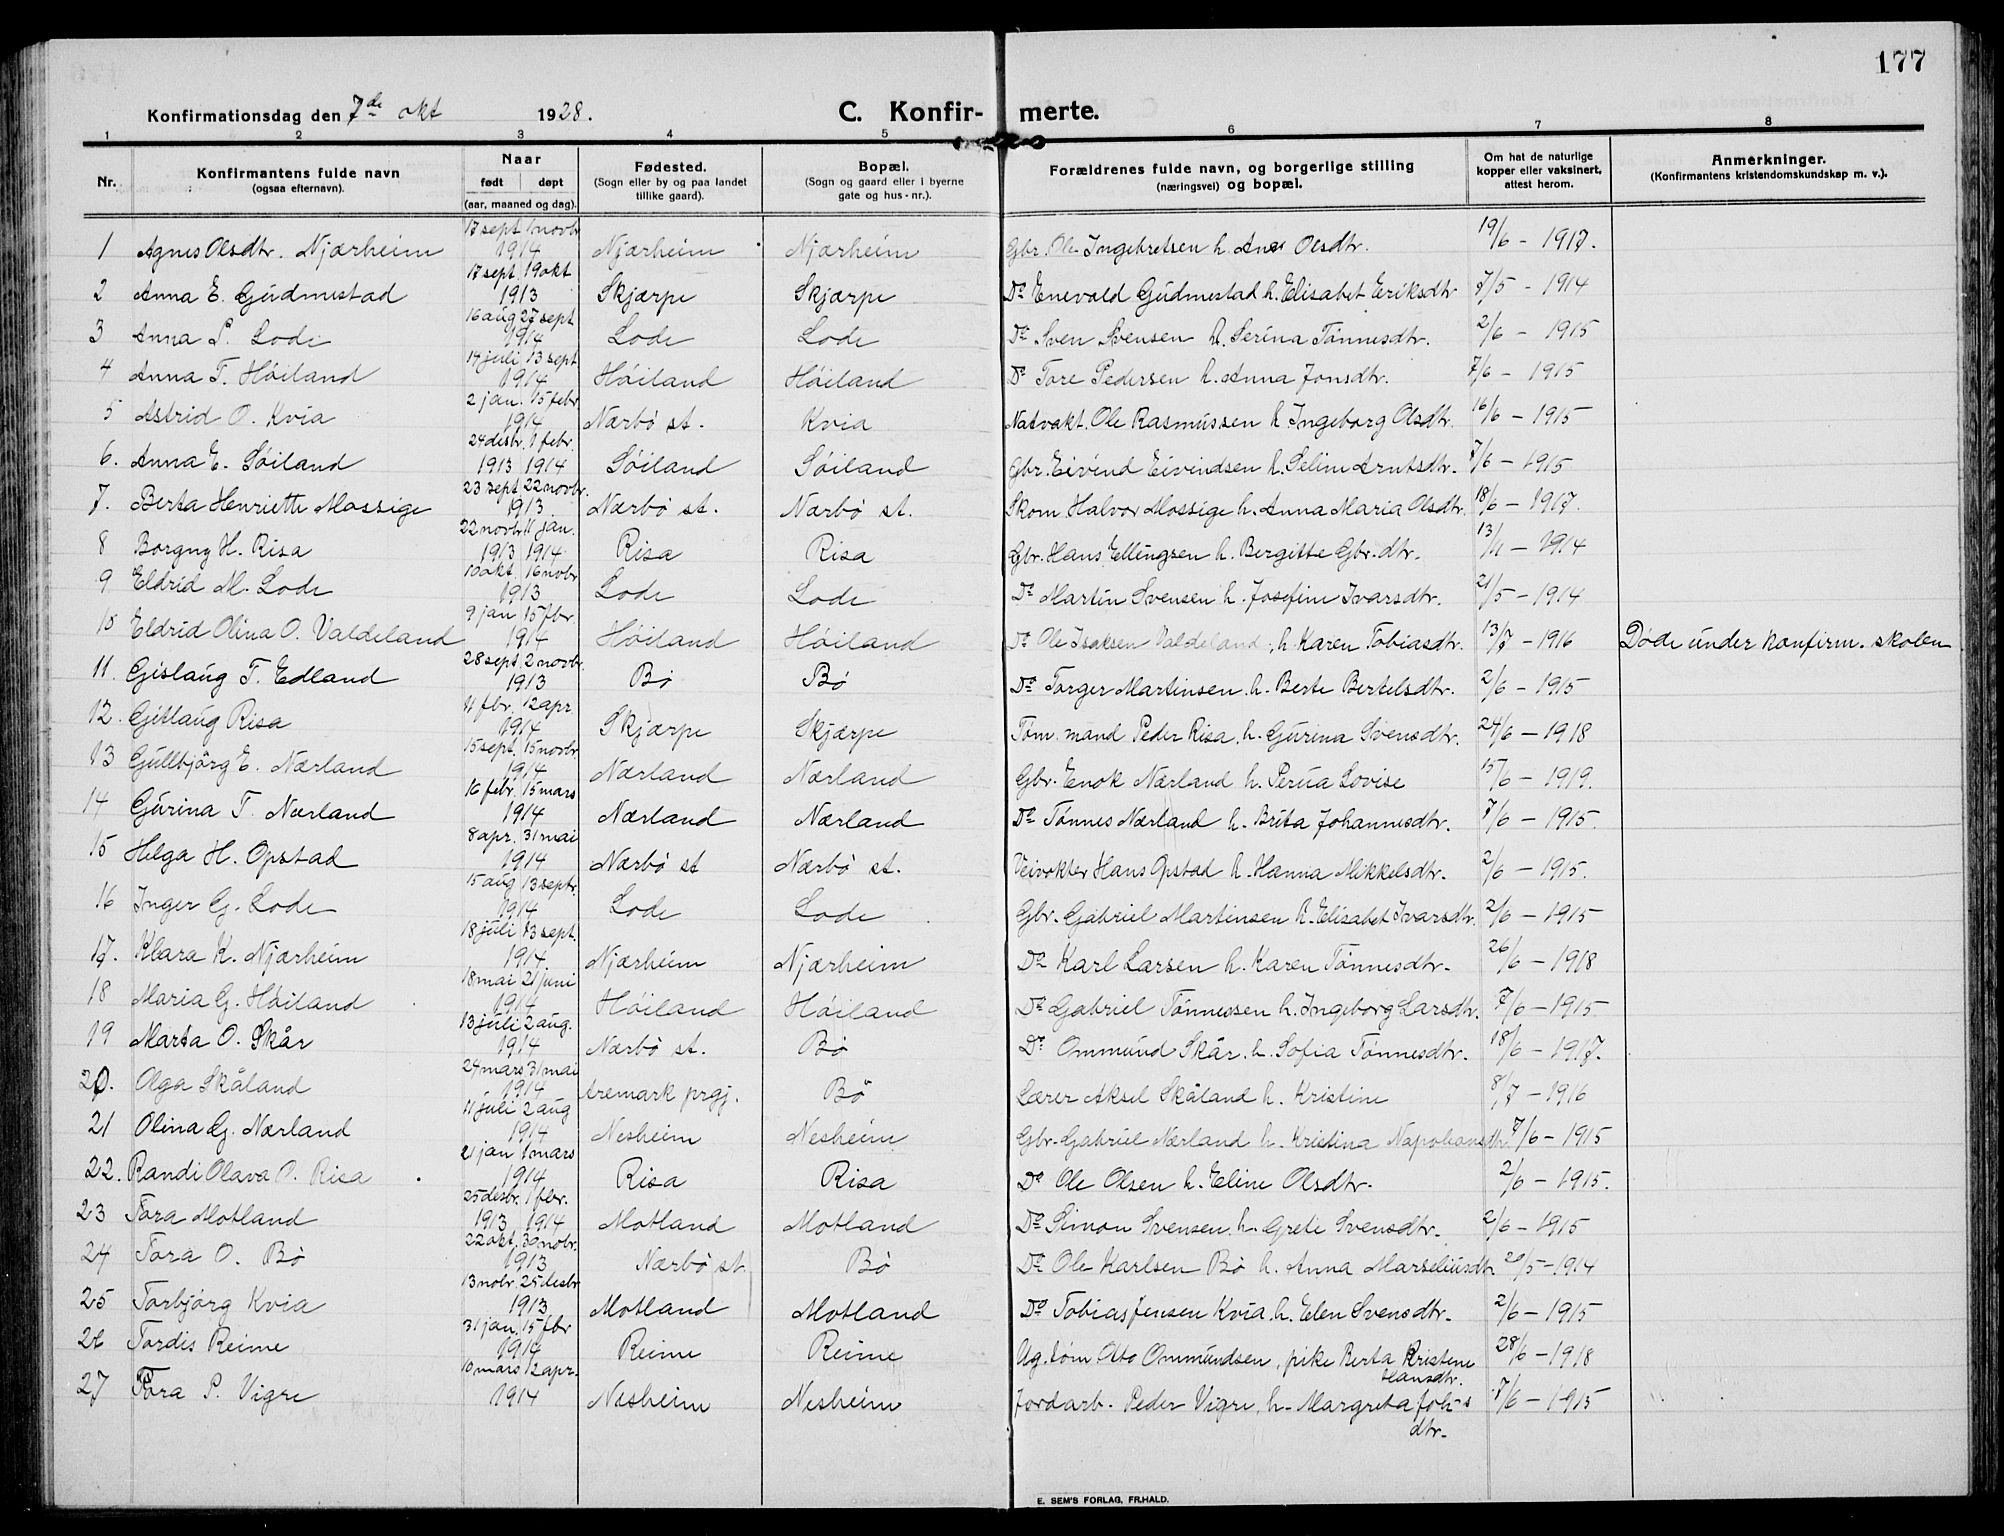 177
Konfirmationsdag den 7de okt 1928. C. Konfir- merte.
1 2 3 4 5 6 7 8
Nr. Konfirmantens fulde navn (ogsaa efternavn). Naar født døpt (aar, maaned og dag). Fødested. (Sogn eller by og paa landet tillike gaard). Bopæl. (Sogn og gaard eller i byerne gate og hus-nr.). Forældrenes fulde navn, og borgerlige stilling (næringsvei) og bopæl. Om hat de naturlige kopper eller vaksinert, attest herom. Anmerkninger. (Konfirmantens kristendomskundskap m. v.).
1 Agnes Olsdtr. Njærheim 17 sept. 1 novbr 1914 Njærheim Njærheim Gbr. Ole Ingebretsen h. Olsdtr. 19/6 - 1917.
2 Anna E. Gudmestad 17 sept. 19 okt 1913 Skjærpe Skjærpe Do Enevald Gudmestad h. Elisabet Eriksdtr 7/5 - 1914
3 Anna S. Lode 16 aug 27 sept 1914 Lode Lode Do Sven Svensen h. Serina Tønnesdtr. 2/6 - 1915
4 Anna T. Høiland 14 juli 13 sept 1914 Høiland Høiland Do Tore Pedersen h. Anna Jonsdtr. 7/6 - 1915
5 Astrid O. Kvia 2 jan. 15 febr 1914 Nærbø st. Kvia Natvakt. Ole Rasmussen h Ingeborg Olsdtr. 16/6 - 1915
6. Anna E. Søiland 24 desbr. 1 febr. 1913 1914 Søiland Søiland Gbr. Eivind Eivindsen h. Selim Arntsdtr. 7/6 - 1915
7. Berta Henriette Mossige 23 sept 22 novbr. 1913 Nærbø st. Nærbø st. Skom Halvor Mossige h. Anna Maria Olsdtr. 18/6 - 1917.
8 Borgny H. Risa 22 novbr. 11 jan. 1913 1914 Risa Risa Gbr. Hans Ellingsen h. Bergitte Gbr. dtr. 13/11 - 1914
9 Eldrid M. Lode 10 okt. 16 novbr 1913 Lode Lode Do Martin Svensen h. Josefine Ivarsdtr. 21/5 - 1914
10 Eldrid Olina O. Valdeland 9 jan 15 fbr. 1914 Høiland Høiland Do Ole Isaksen Valdeland, h. Karen Tobiasdtr. 13/7 - 1916 Døde under konfirm. skolen
11. Gislaug T. Edland 28 sept. 2 novbr. 1913 Bø Bø Do Torger Martinsen h. Berte Bertelsdtr. 2/6 - 1915
12. Gitlaug Risa 4 fbr. 12 apr. 1914 Skjærpe Skjærpe Tøm. mand Peder Risa h. Gurina Svensdtr. 24/6 - 1918
13 Gullbjörg E. Nærland 15 sept. 15 novbr. 1914 Nærland Nærland Gbr. Enok Nærland h. Lovise 15/6 - 1919.
14 Gurina T. Nærland 16 febr. 15 mars 1914 Nærland Nærland Do Tønnes Nærland h. Brita Johannesdtr. 7/6 - 1915.
15 Helga H. Opstad 8 apr. 31 mai 1914 Nærbø st Nærbø st. Veivokter Hans Opstad h. Hanna Mikkelsdtr. 2/6 - 1915.
16 Inger G. Lode 15 aug 13 septr. 1914 Lode Lode Gbr. Gabriel Martinsen h. Elisabet Ivarsdtr. 2/6 - 1915
17. Klara K. Njærheim 18 juli 13 sept. 1914 Njærheim Njærheim Do Karl Larsen h. Karen Tønnesdtr. 26/6 - 1918
18 Maria G. Høiland 18 mai 21 juni 1914 Høiland Høiland Do Gabriel Tønnessen h. Ingeborg Larsdtr. 7/6 - 1915
19 Marta O. Skår 13 juli 2 aug. 1914 Nærbø st. Bø Do Ommund Skår h. Sofia Tønnesdtr. 18/6 - 1917.
20. Olga Skåland 24 mars 31 mai 1914 Aremark prgj. Bø Lærer Aksel Skåland h. Kristine 8/7 - 1916
21 Olina G. Nærland 11 juli 2 aug 1914 Nesheim Nesheim Gbr. Gabriel Nærland h. Kristina Napoleonsdtr. 7/6 - 1915
22. Randi Olava O. Risa 21 jan 1 mars 1914 Risa Risa Do Ole Olsen h. Eline Olsdtr. 2/6 - 1915.
23 Tora Motland 25 desbr. 1 febr. 1913 1914 Motland Motland Do Simon Svensen h. Grete Svensdtr. 2/6 - 1915
24 Tora O. Bø 22 okt. 30 nobr. 1913 Nærbø st. Bø Do Ole Karlsen Bø h. Anna Marseliusdtr 20/5 - 1914
25 Torbjørg Kvia 13 nobr. 25 desbr 1913 Motland Motland Do Tobias Jensen Kvia h. Elen Svensdtr. 2/6 - 1915
26 Tordis Reime 31 jan. 15 fbr 1914 Reime Reime Ug. tøm Otto Ommundsen, pike Berta Kristene Hansdtr. 28/6 - 1918
27 Tora P. Vigre 10 mars 12 apr. 1914 Nesheim Nesheim Jordarb. Peder Vigre, h. Margreta Joh-s dtr. 7/6 - 1915
E. SEM'S FORLAG, FR.HALD.